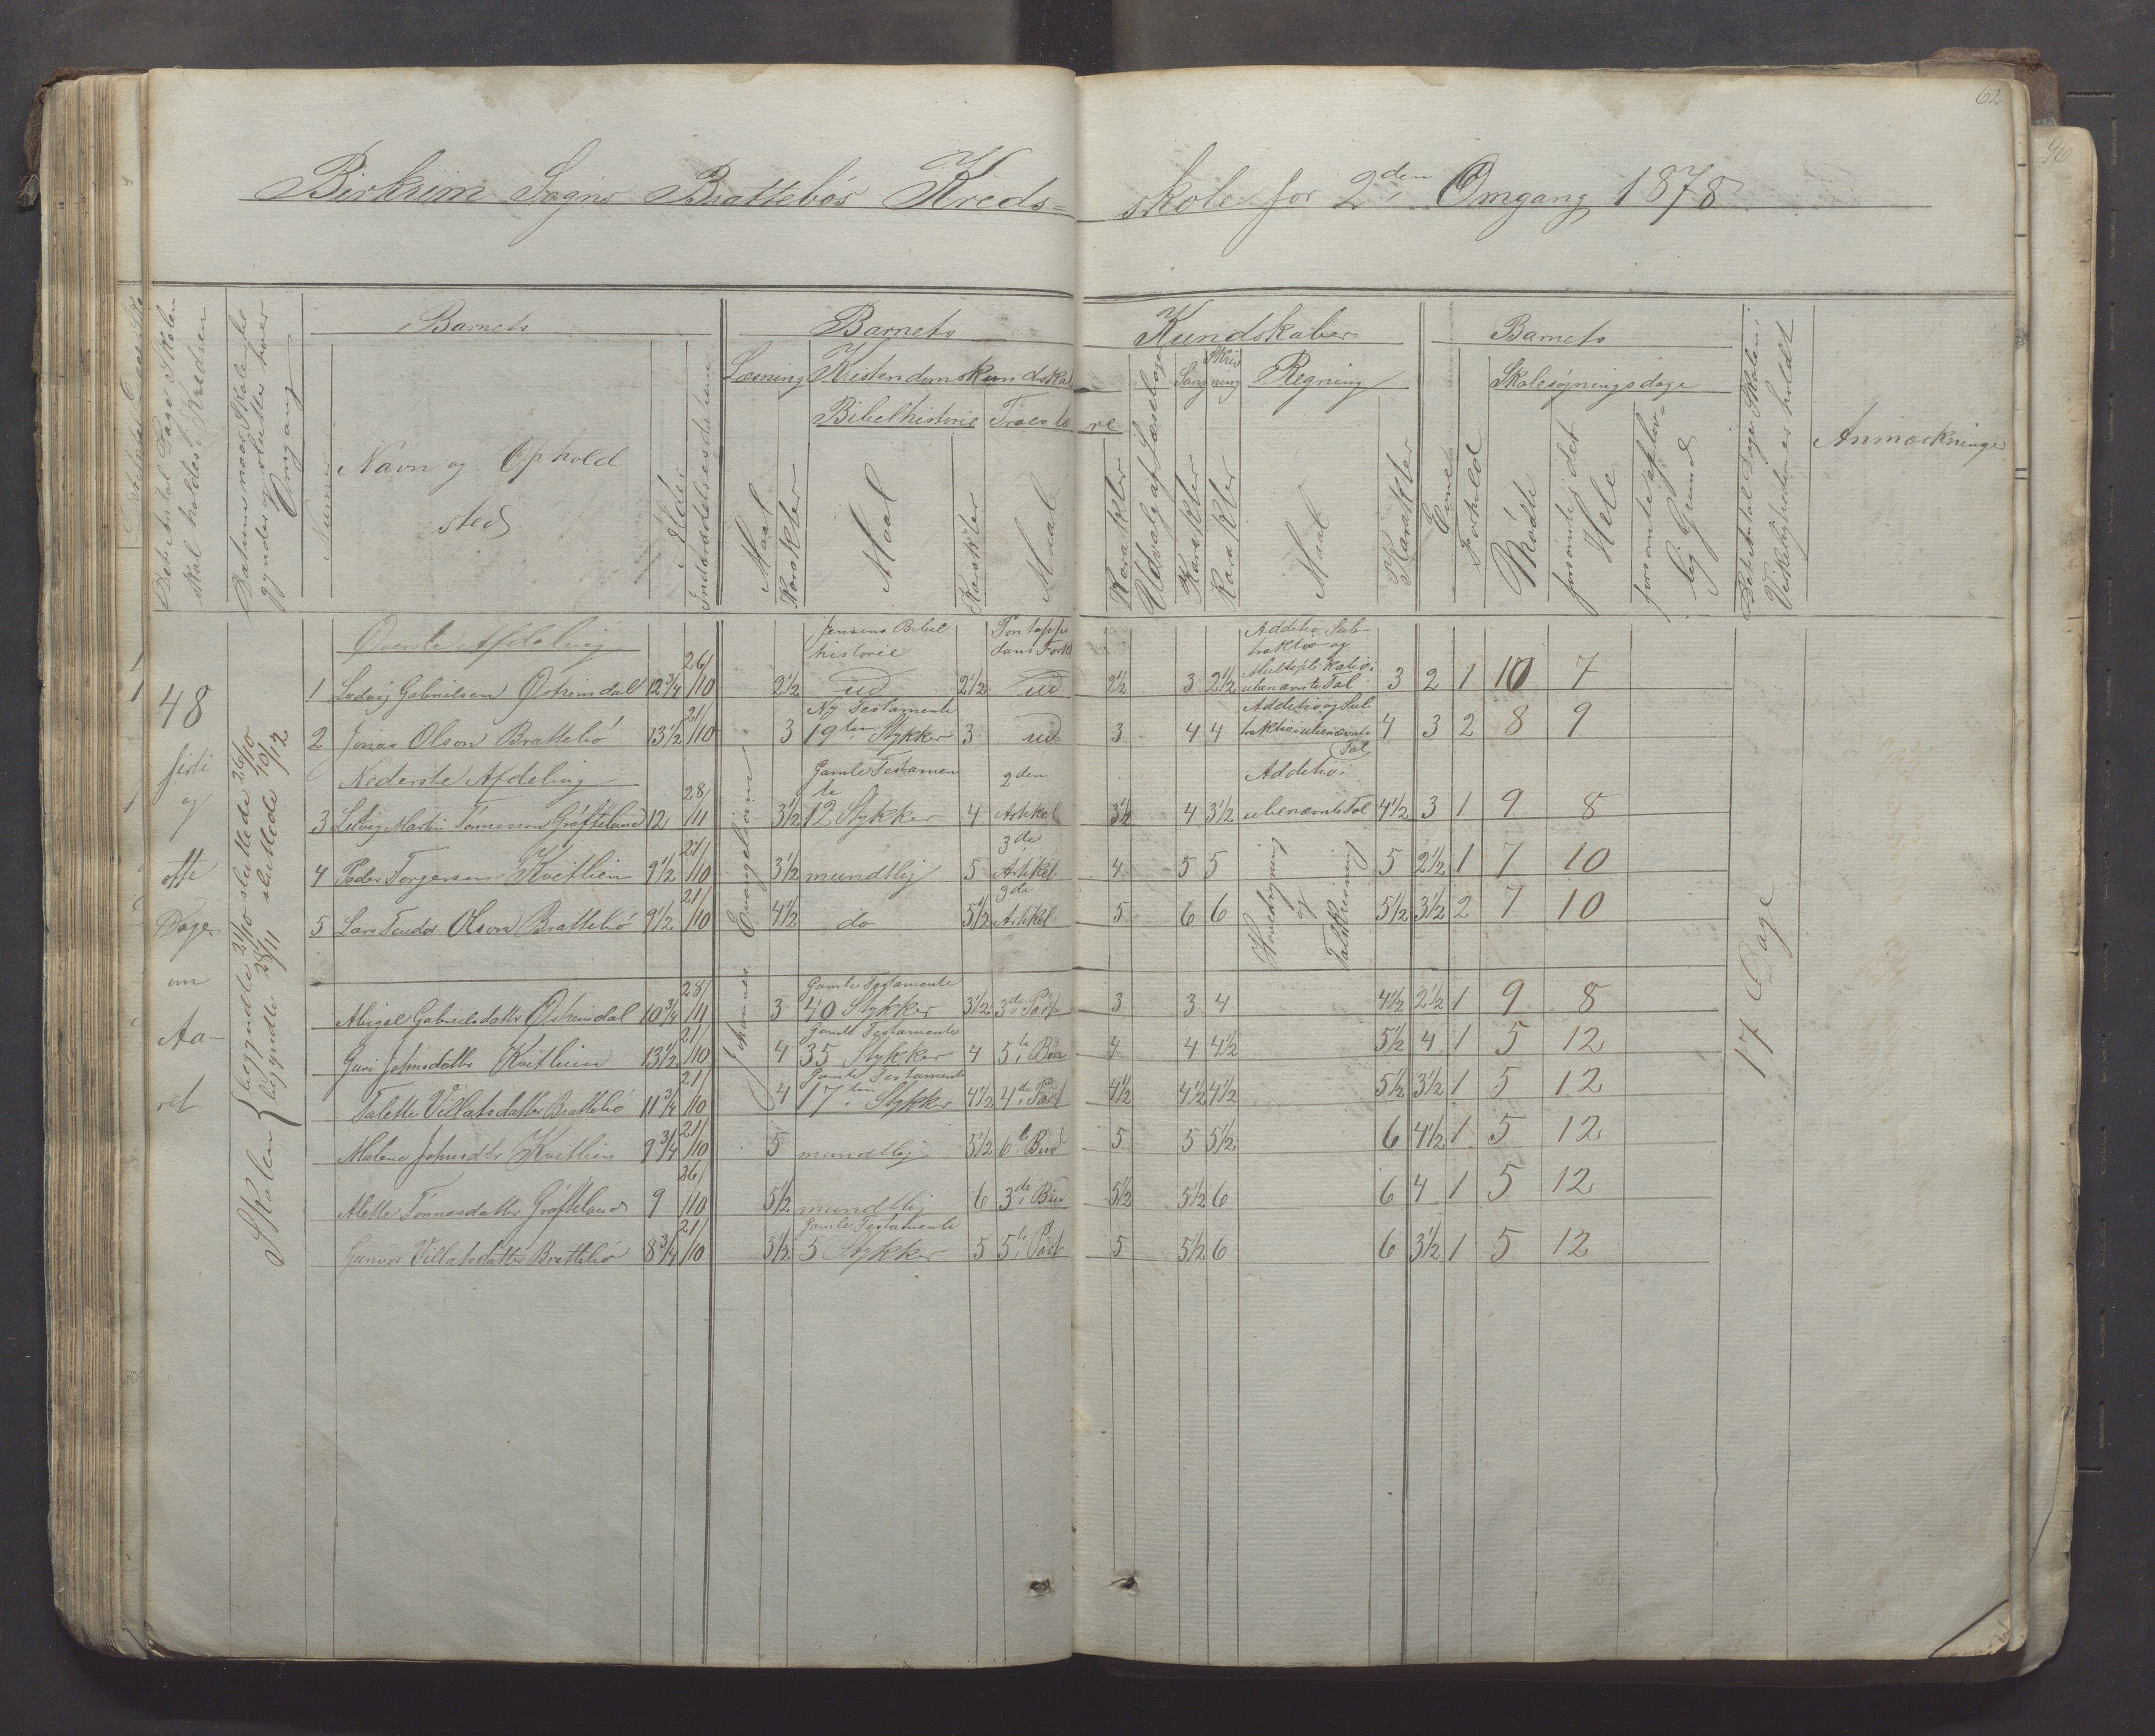 62
96
Birkrem Sogns Brattebøs Kreds=
skole for 2den Omgang 1878
Det Antal Dage Skolen
skal holdes i Kredsen
Datum naar Skolen be
gynder og slutter hver
Omgang
Numer
Barnets
Navn og Ophold
sted
Alder
Indtrædelsesdatum
Barnets
Læsning
Maal
Karakter
Kristendomskundskab
Bibelhistorie
Maal
Karakter
Troeslæ
re
Maal
Karakter
Kundskaber
Udvalg af Læsebogen
Sang
Karakter
Skriv
ning
Karakter
Regning
Maal
Karakter
Evne
Forhold
Barnets
Skolesøgningsdage
Mødte
forsømte i det
Hele
forsømte af lov=
lig Grund
Det Antal Dage Skolen i
Virkeligheden er holdt
Anmærkninger
48
firti
og
otte
Dage
om
Aa-
ret
Skolen { begyndte 21/10 sluttede 26/10
begyndte 28/11 sluttede 10/12
Johannes Evangelium
Øverste Afdeling
Jensens Bibel
historie
Pontoppi
dans Forkl
Additio Sub-
traktio og
Multiplikatio i
ubenævnte Tal
1 Ludvig Gabrielsen Østremdal 12 3/4 26/10 2 1/2 ud 2 1/2 ud 2 1/2 3 2 1/2 3 2 1 10 7
Ny Testamente
Additio og Sub
traktio i ubenævnte
Tal
2 Jonas Olson Brattebø 13 1/2 21/10 3 19ten Stykker 3 ud 3 4 4 4 3 2 8 9
Nederste Afdeling
Gamle Testamen
te
2den
Additio i
3 Ludvig Martin Tønnesson Gråfteland 12 28/11 3 1/2 12 Stykker 4 Artikel 3 1/2 4 3 1/2 ubenævnte Tal 4 1/2 3 1 9 8
3de
4 Peder Torgersen Kvitlien 9 1/2 21/10 3 1/2 mundtlig 5 Artikel 4 5 5 5 2 1/2 1 7 10
3de
5 Lars Teodor Olson Brattebø 9 1/2 21/10 4 1/2 do 5 1/2 Artikel 5 6 6 5 1/2 3 1/2 2 7 10
Hovedregning
og
Talskrivning
Gamle Testamente
Abigal Gabrielsdatter Østremdal 10 3/4 28/11 3 40 Stykker 3 1/2 3de Part 3 3 4 4 1/2 2 1/2 1 9 8
Gamle Testamente
Guri Johnsdatter Kvitlien 13 1/2 21/10 4 35 Stykker 4 5te Bøn 4 4 4 1/2 5 1/2 4 1 5 12
Gamle Testamente
Talette Villatsdatter Brattebø 11 3/4 21/10 4 17ten Stykker 4 1/2 4de Part 4 1/2 4 1/2 4 1/2 5 1/2 3 1/2 1 5 12
Malene Johnsdtr Kvitlien 9 3/4 21/10 5 mundtlig 5 1/2 6te Bud 5 5 5 1/2 6 4 1/2 1 5 12
Alette Tønnesdatter Gråfteland 9 26/10 5 1/2 mundtlig 6 3de Bud 5 1/2 5 1/2 6 6 4 1 5 12
Gamle Testamente
Gunvor Villatsdatter Brattebø 8 3/4 21/10 5 1/2 5 Stykker 5 5te Part 5 5 1/2 6 6 3 1/2 1 5 12
17 Dage